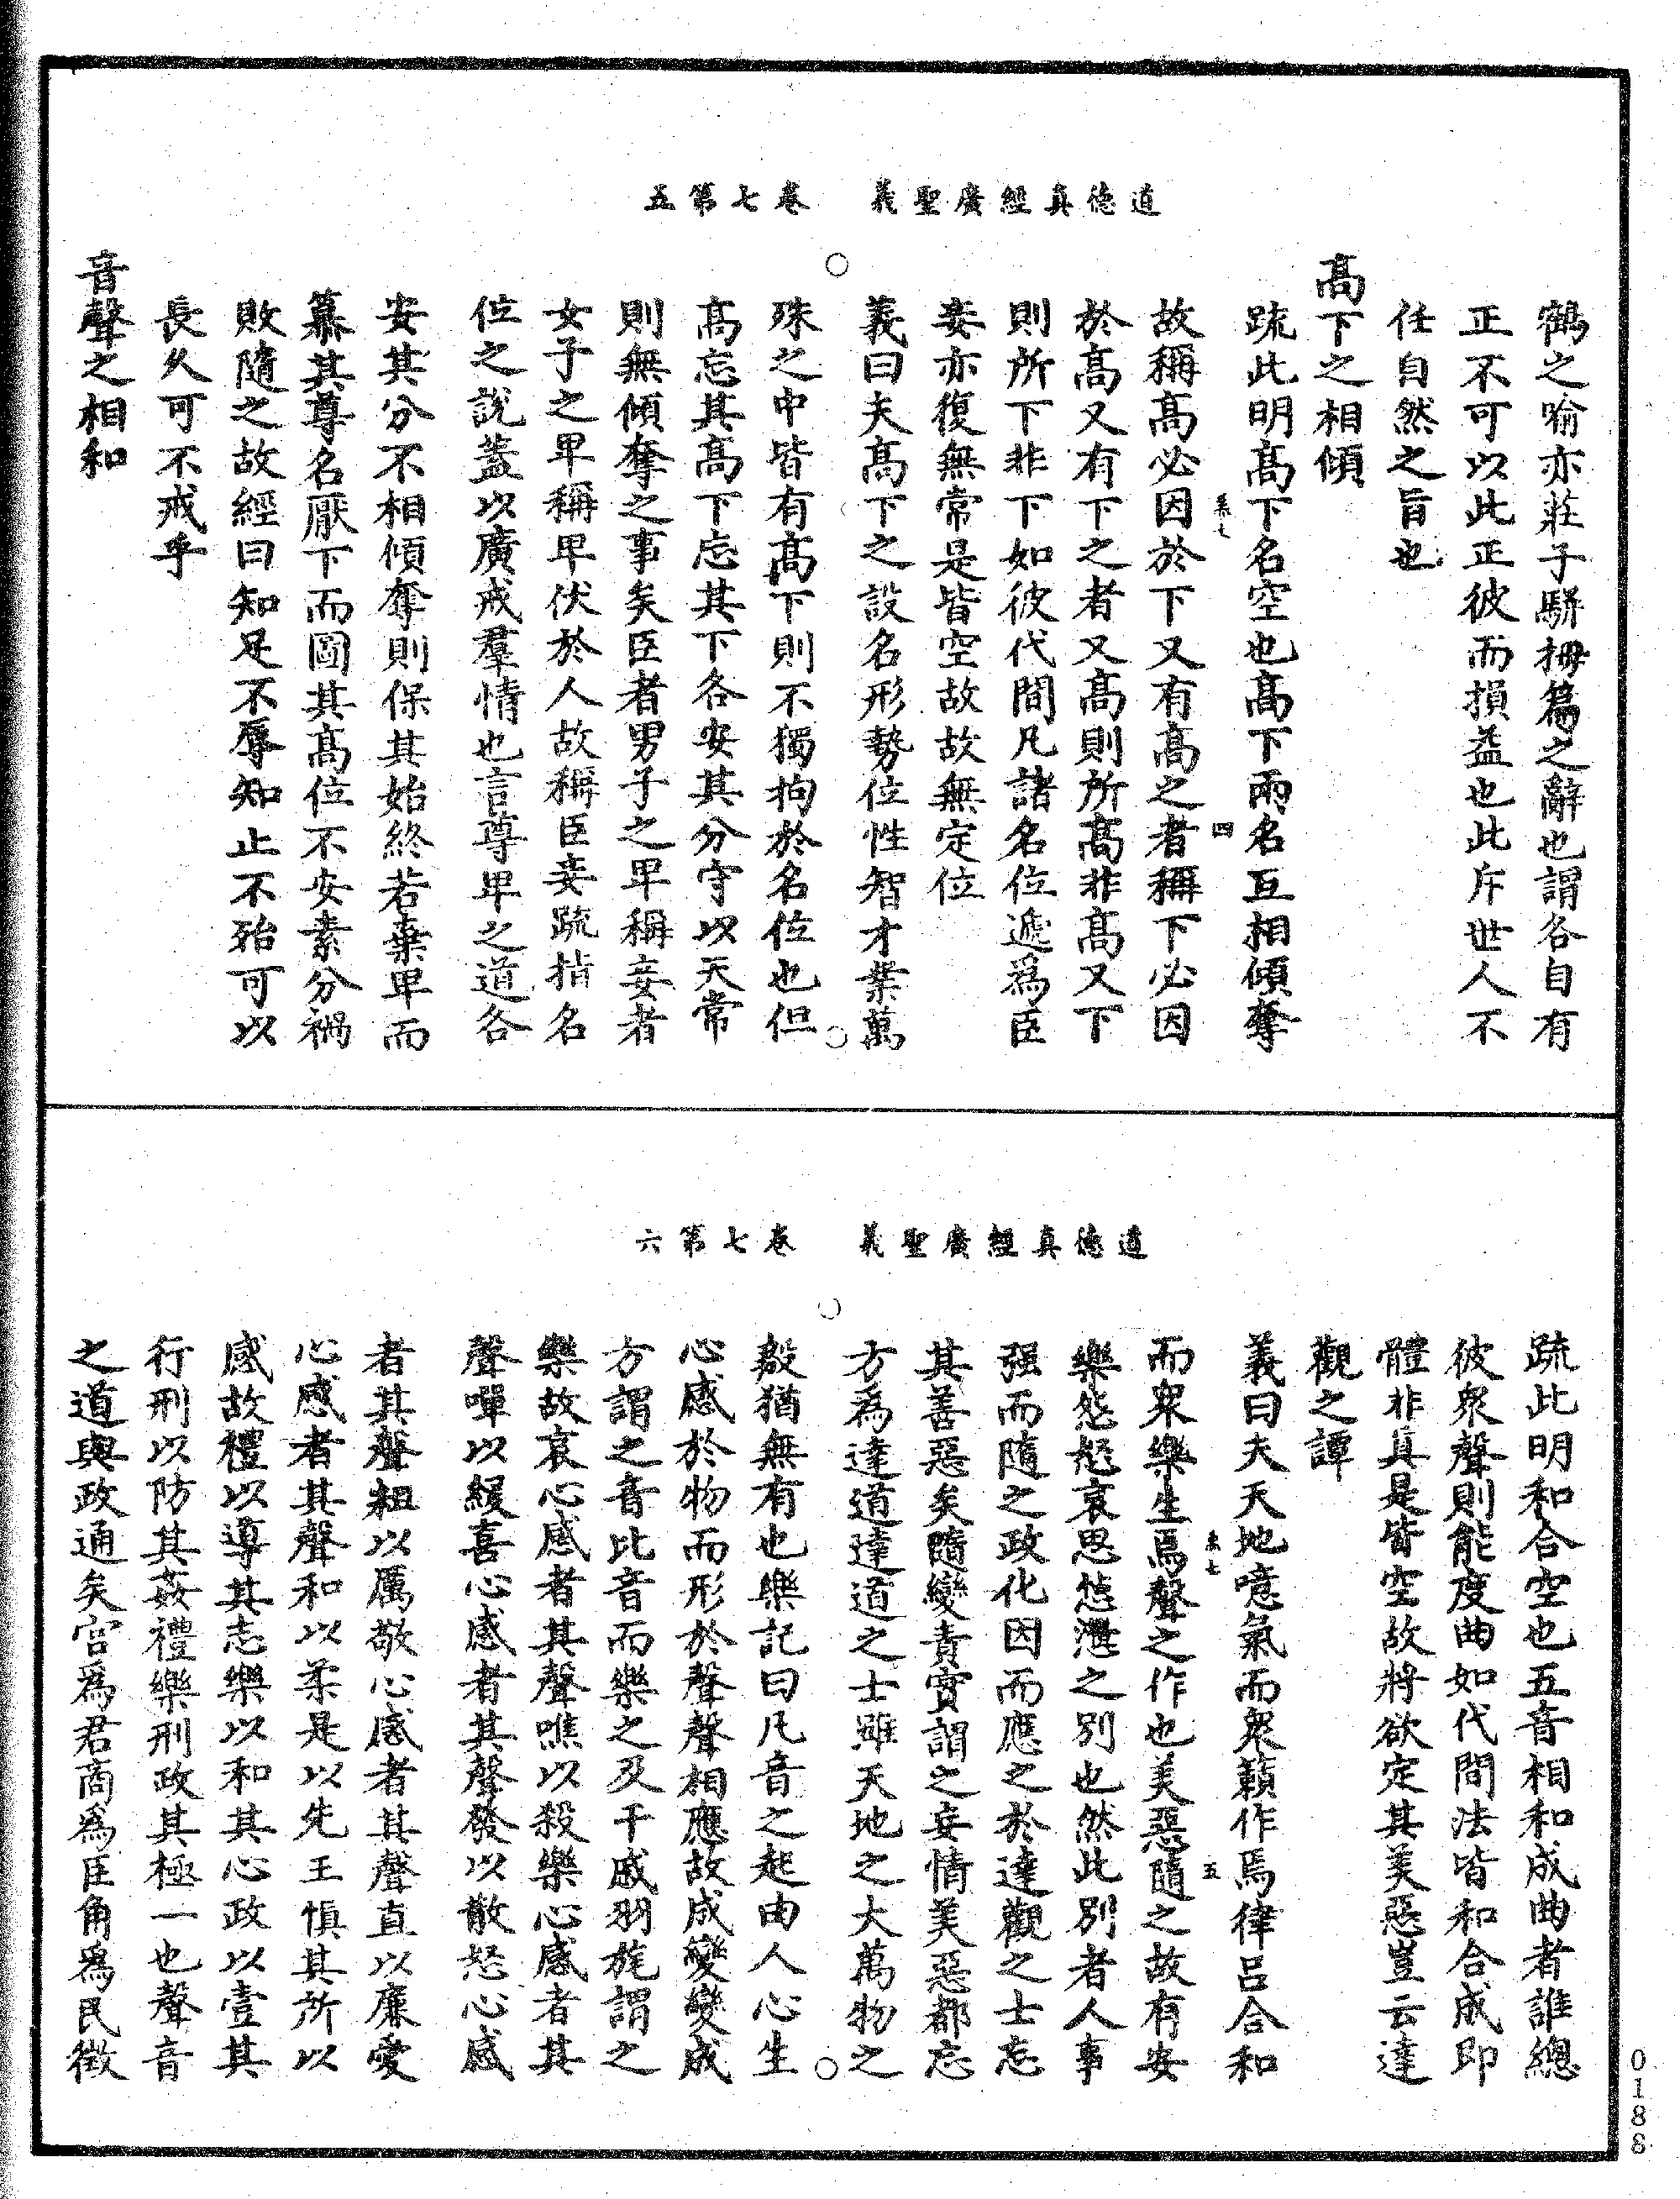 道德真經廣聖義　卷七第五
鶴之喻亦莊子駢拇篇之辭也謂各自有
正不可以此正彼而損益也此斥世人不
任自然之旨也
高下之相傾
疏此明高下名空也高下兩名互相傾奪
卷七
四
故稱高必因於下又有高之者稱下必因
於高又有下之者又高則所高非高又下
則所下非下如彼代間凡諸名位遞為臣
妾亦復無常是皆空故故無定位
義曰夫高下之設名形勢位性智才業萬
殊之中皆有高下則不獨拘於名位也但
高忘其高下忘其下各安其分守以天常
則無傾奪之事矣臣者男子之卑稱妾者
女子之卑稱卑伏於人故稱臣妾疏指名
位之說蓋以廣戒羣情也言尊卑之道各
安其分不相傾奪則保其始終若棄卑而
慕其尊名厭下而圖其高位不安素分禍
敗隨之故經曰知足不辱知止不殆可以
長久可不戒乎
音聲之相和
道德真經廣聖義　卷七第六
疏此明和合空也五音相和成曲者誰總
彼衆聲則能度曲如代間法皆和合成即
體非真是皆空故將欲定其美惡豈云達
觀之譚
義曰夫天地噫氣而衆籟作焉律呂合和
卷七
五
而衆樂生焉聲之作也美惡隨之故有安
樂怨怒哀思怗懘之別也然此別者人事
强而隨之政化因而應之於達觀之士忘
其善惡矣隨變責實謂之妄情美惡都忘
方為達道達道之士雖天地之大萬物之
殽猶無有也樂記曰凡音之起由人心生
心感於物而形於聲聲相應故成變變成
方謂之音比音而樂之及干戚羽旄謂之
樂故哀心感者其聲噍以殺樂心感者其
聲嘽以緩喜心感者其聲發以散怒心感
者其聲粗以厲敬心感者其聲直以廉愛
心感者其聲和以柔是以先王慎其所以
感故禮以導其志樂以和其心政以壹其
行刑以防其姦禮樂刑政其極一也聲音
之道與政通矣宮為君商為臣角為民徵
0188